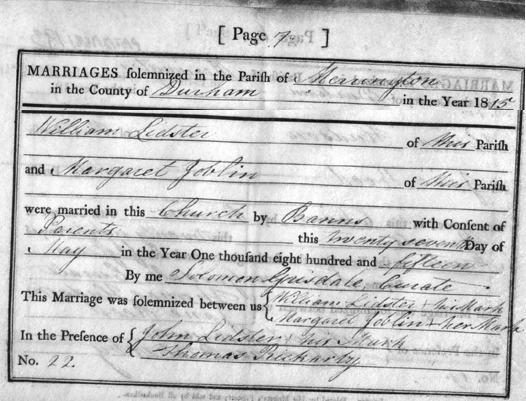 [ Page 7 ]
MARRIAGES solemnized in the Parish of Merrington
in the County of Durham in the Year 1815
William Lidster of this Parish
and Margaret Joblin of this Parish
were married in this Church by Banns with Consent of
Parents this twenty seventh Day of
May in the Year One thousand eight hundred and fifteen
By me Solomon Grisdale, Curate
This Marriage was solemnized between us { William Lidster + his Mark
Margaret Joblin + her Mark
In the Presence of { John Lidster + his Mark
Thomas
No. 22.